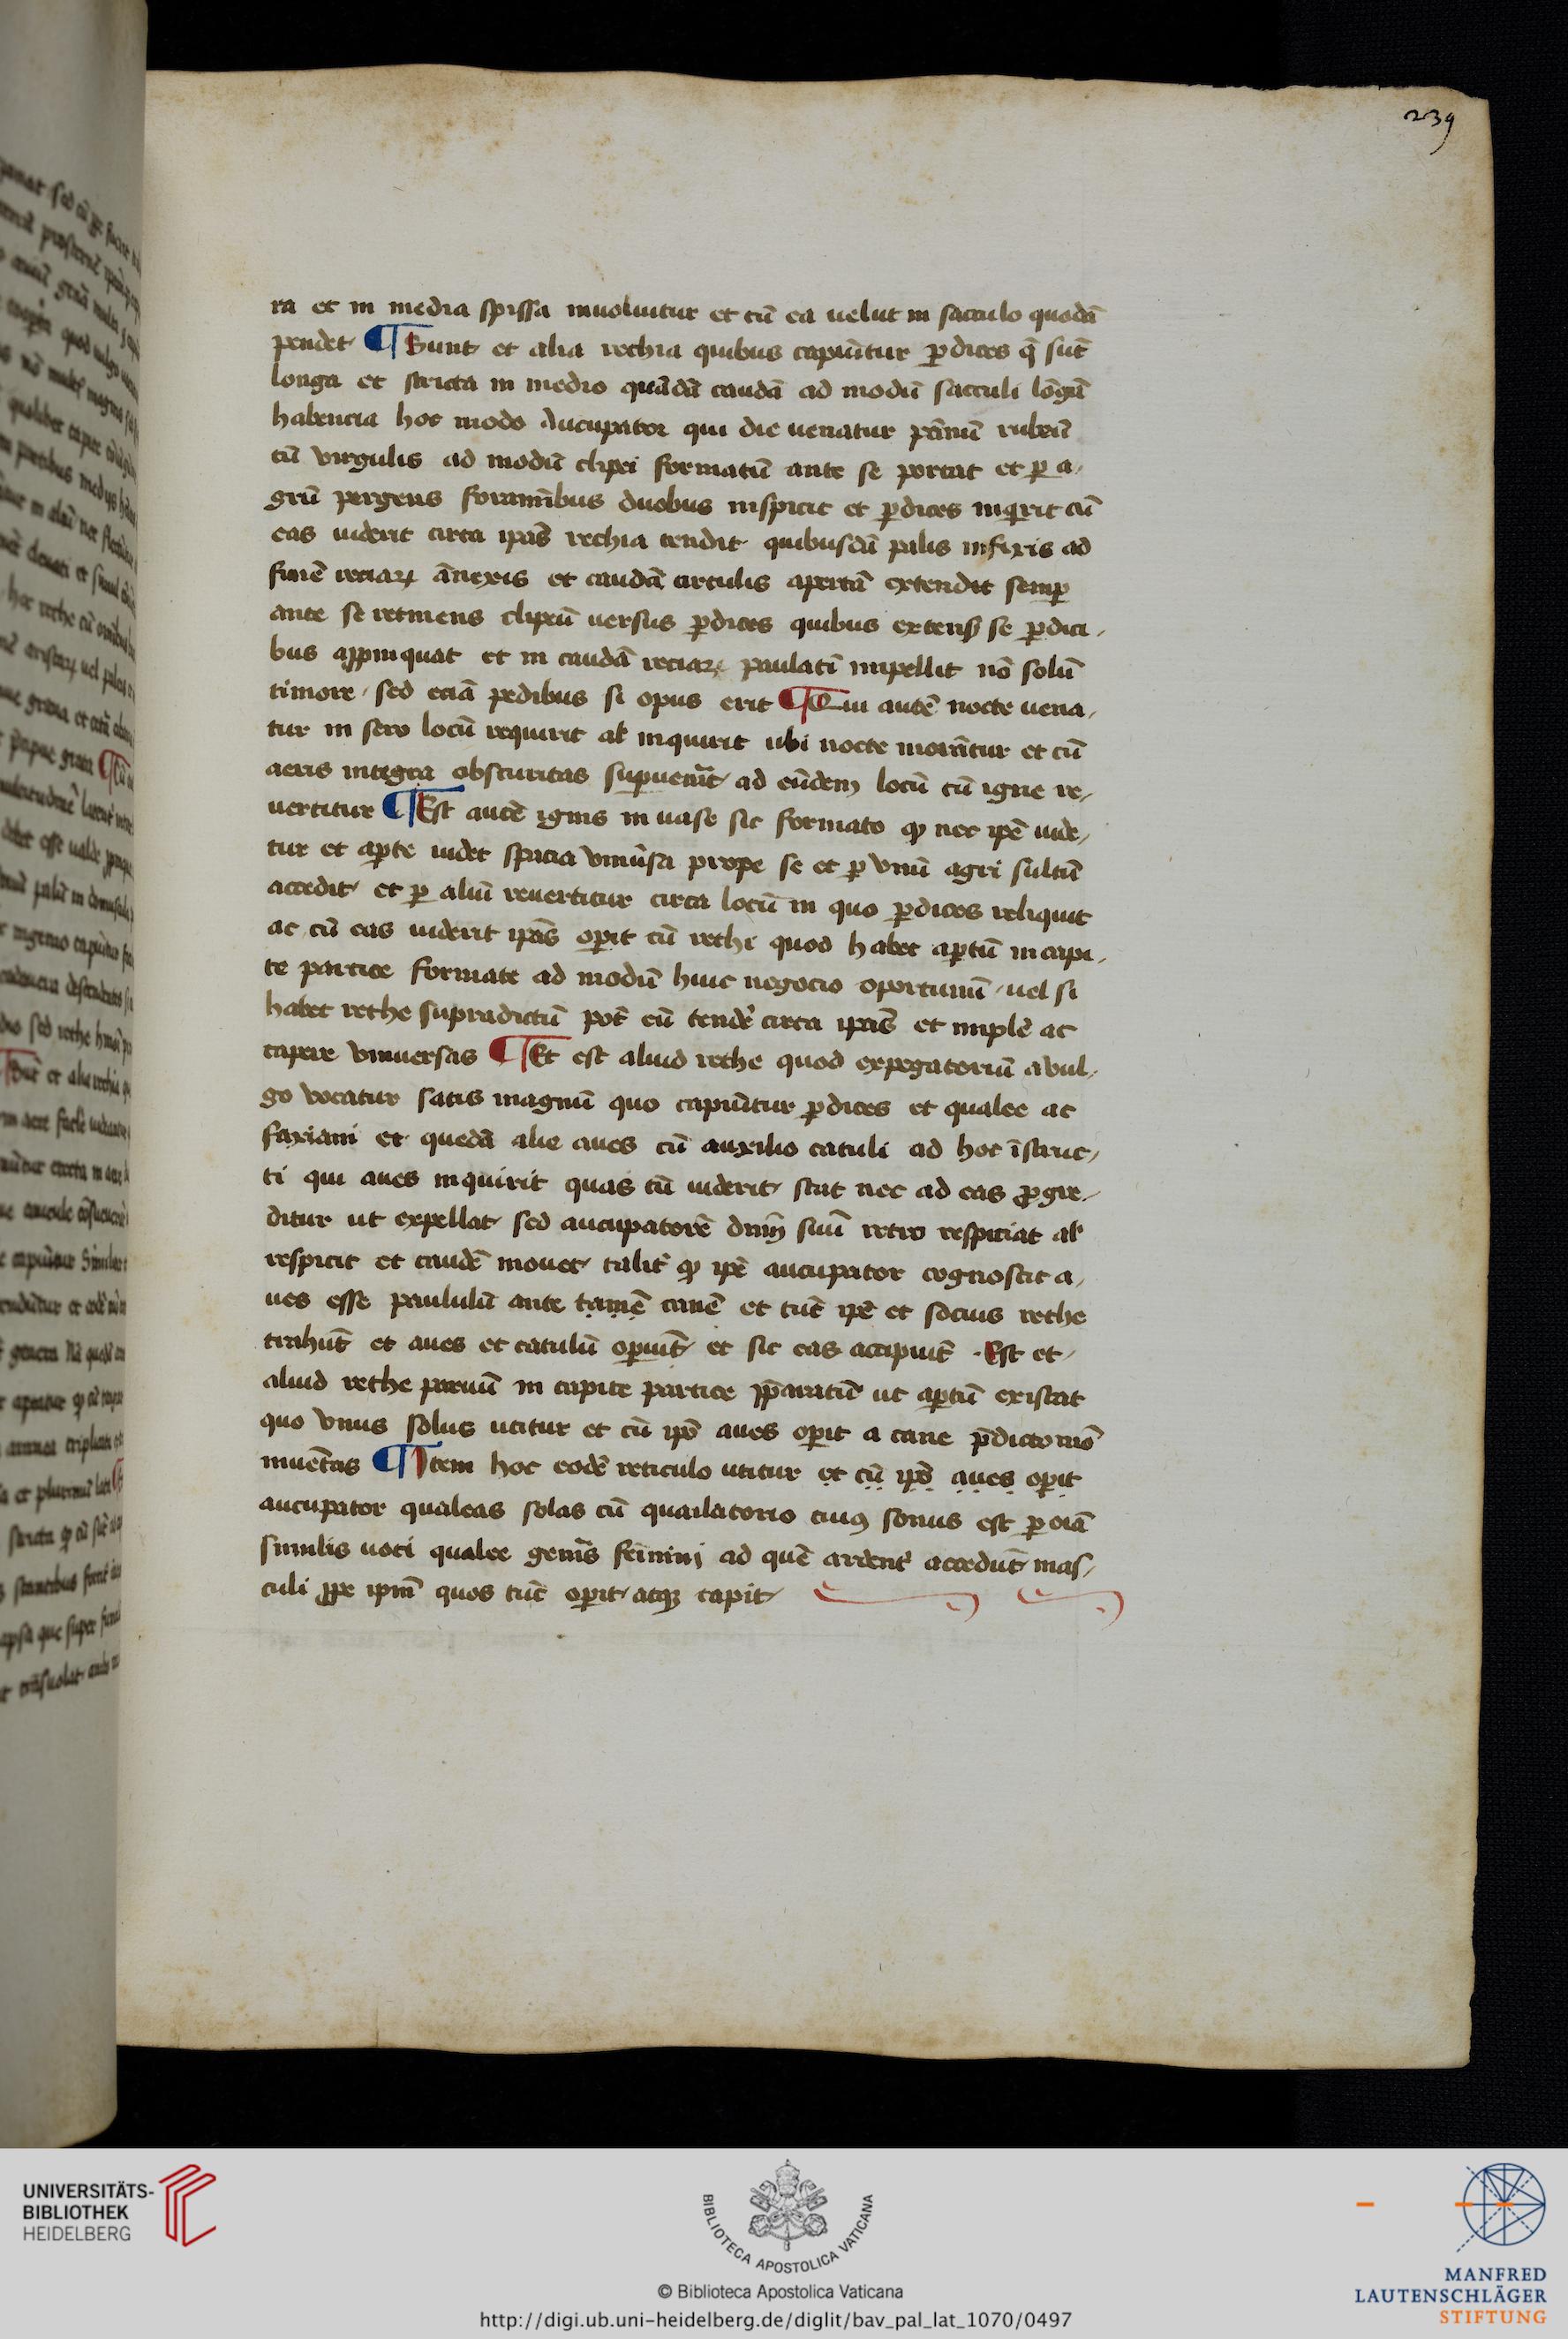 239
ra et in media spissa inuoluitur et cū ea uelut in sacculo quodā
pendet ¶ Sunt et alia rechia quibus capiūtur ꝑdices q̄ sūt
longa et stricta in medio quādā caudā ad modū sacculi lōgū
habencia hoc modo Aucupator qui die uenatur
cū virgulis ad modū clipei formatū ante se portat et ꝑ a-
grū pergens foraminibus duobus inspicit et ꝑdices inq̄rit cū
eas uiderit circa ip̄as rechia tendit quibusdā palis infixis ad
funē reciaꝝ ānexis et caudā circulis apertā extendit semꝑ
ante se retinens clipeū uersus ꝑdices quibus extensis se ꝑdici-
bus appinquat et in caudā reciaꝝ paulatī impellit nō solū
timore sed eciā pedibus si opus erit ¶ Qui autē nocte uena-
tur in sero locū requirit al̄ inquirit ubi nocte morātur et cū
aeris integra obscuritas supuenit ad eūdem locū cū igne re-
uertitur ¶ Est autē ignis in uase sic formato ꝙ nec ip̄e uide-
tur et aꝑte uidet spacia vniūsa prope se et ꝑ vnū agri sulcū
accedit et ꝑ aliū reuertitur circa locū in quo ꝑdices reliquit
ac cū eas uiderit ip̄as oꝑit cū rethi quod habet aꝑtū in capi-
te partice formate ad modū huic negocio oportunū uel si
habet rethe supradictū pōt eū tendē circa ip̄as et implē ac
capere vniuersas ¶ Et est aliud rethe quod expegatoriū a vul-
go vocatur satis magnū quo capiūtur ꝑdices et qualee ac
faxiani et quedā alie aues cū auxilio catuli ad hoc īstruc-
ti qui aues inquirit quas cū uiderit stat nec ad eas ꝓgre-
ditur ut expellat sed aucupatorē dn̄m suū retro respiciat al̄
respicit et caudē mouet talit̄ ꝙ ip̄e aucupator cognoscit a-
ues esse paululū ante tamē canē et tūc ip̄e et socius rethe
trahūt et aues et catulū oꝑiūt et sic eas accipiūt . Est et
aliud rethe paruū in capite partice p̄paratū ut aꝑtū existat
quo vnus solus utitur et cū ip̄o aues oꝑit a cane p̄dicto mō
inuētas ¶ Item hoc eodē reticulo utitur et cū ip̄o aues oꝑit
aucupator qualeas solas cū quailatorio cuiꝰ sonus est ꝑ oīa
similis uoci qualee gen̄is feīnini ad quē ardent̄ accedūt mas-
culi ꝓpe ipm̄ quos tūc oꝑit atqꝫ capit
UNIVERSITÄTS-
BIBLIOTHEK
HEIDELBERG
BIBLIOTECA APOSTOLICA VATICANA
© Biblioteca Apostolica Vaticana
http://digi.ub.uni-heidelberg.de/diglit/bav_pal_lat_1070/0497
MANFRED
LAUTENSCHLÄGER
STIFTUNG